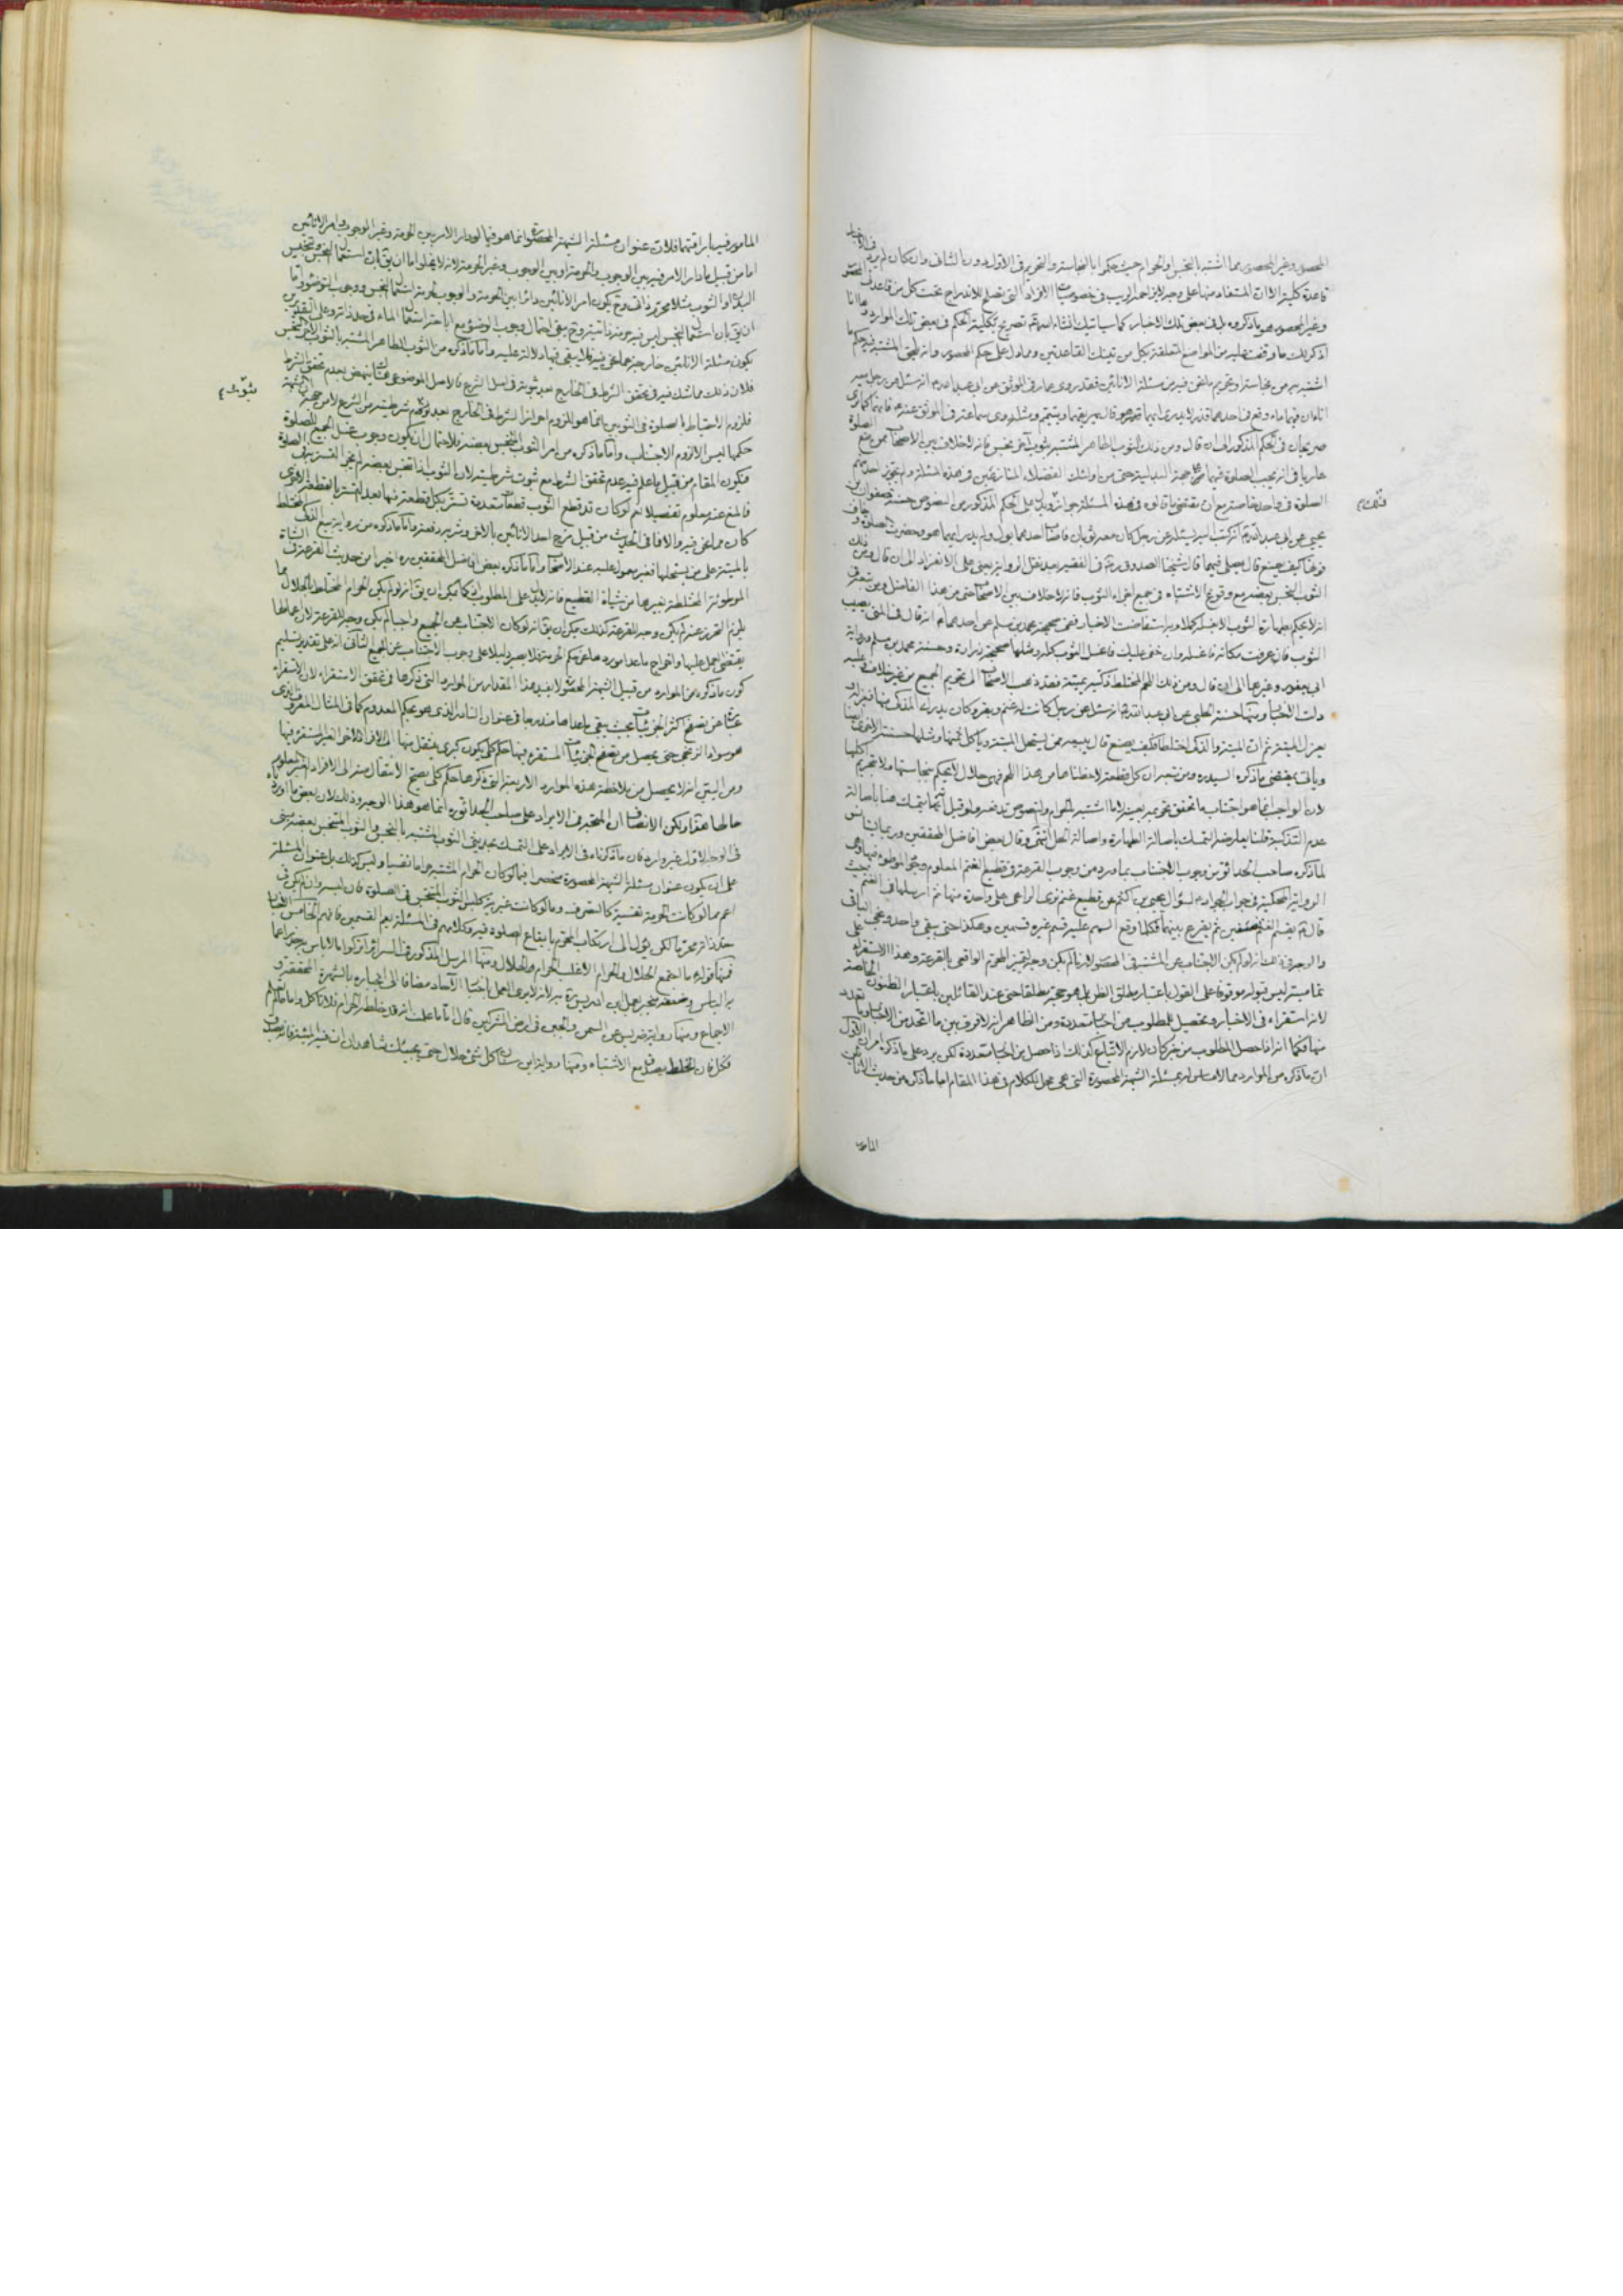 المحصور وغير المحصور مما اشتبه بالنجس والحرام حيث حكموا بالنجاسة والتحريم فى الاول دون الثانى وان كان لم يرد فى الاخبار
قاعدة كلية الا ان المستفاد منها على وجه لا يزاحمه الريب فى خصوصيات الافراد التى تصلح للاندراج تحت كل من قاعدتى المحصور
وغير المحصور هو ما ذكروه بل فى بعض تلك الاخبار كما سيأتيك انشاء الله تصريح بكلية الحكم فى بعض تلك الموارد وها انا
اذكر لك ما وقفت عليه من المواضع المتعلقة بكل من تينك القاعدتين وما دل على حكم المحصور وانه يلحق المشتبه فيه حكم ما
اشتبه به من نجاسة او تحريم ما نحن فيه من مسئلة الانائين فقد روى عمار فى الموثق عن ابى عبد الله انه سئل عن رجل معه
اناءان فيهما ماء وقع فى احدهما قذر لا يدرى ايهما هو قال يهريقهما ويتيمم ومثله روى سماعة فى الموثق عنه فانهما كما ترى
صريحان فى الحكم المذكور الى ان قال ومن ذلك الثوب الطاهر المشتبه بثوب آخر نجس فانه لا خلاف بين الاصحاب ممن منع
الصلوة
عاريا فى انه يجب الصلوة فيهما
الصلوة فى واحد خاصة مع ان مقتضى ما قالوه فى هذه المسئلة جوازه ويدل على الحكم المذكور من النصوص حسنة صفوان بن
يحيى عن ابى عبد الله انه كتب اليه يسئله عن رجل كان معه ثوبان فاصاب احدهما بول ولم يدر ايهما هو وحضرت الصلوة وخاف
فوتها كيف يصنع قال يصلى فيهما قال شيخنا الصدوق ره فى الفقيه بعد نقل الرواية يعنى على الانفراد الى ان قال ومن ذلك
الثوب النجس بعضه مع وقوع الاشتباه فى جميع اجزاء الثوب فانه لا خلاف بين الاصحاب حتى من هذا الفاضل ومن تبعه فى
انه لا يحكم بطهارة الثوب الا بغسله كملا وبه استفاضت الاخبار ففى صحيحة محمد بن مسلم عن احدهما انه قال فى المنى يصيب
الثوب فان عرفت مكانه فاغسله وان خفى عليك فاغسل الثوب كله ومثلها صحيحة زرارة وحسنة محمد بن مسلم ورواية
ابى يعفور وغيرها الى ان قال ومن ذلك اللحم المختلط ذكيه بميته فقد ذهب الاصحاب الى تحريم الجميع من غير خلاف وعليه
دلت الاخبار ومنها حسنة الحلبى عن ابى عبد الله انه سئل عن رجل كانت له غنم وبقر وكان يدرك المذكى منها فيعزله و
يعزل الميتة ثم ان الميتة والذكى اختلطا كيف يصنع قال يبيعه ممن يستحل الميتة وياكل ثمنها ومثلها حسنته الاخرى ايضا
ويأتى بمقتضى ما ذكره السيد ره ومن تبعه ان كل قطعة لاحظناها من هذا اللحم فهى حلال لا يحكم بنجاستها ولا تحريم اكلها
لان الواجب انما هو اجتناب ما تحقق تحريمه بعينه لا ما اشتبه بالحرام والنصوص تدفعه ولو قيل انما يتمسك هنا باصالة
عدم التذكية قلنا يعارضه التمسك باصالة الطهارة واصالة الحل انتهى وقال بعض افاضل المحققين وربما يستأنس
لما ذكره صاحب الحدائق من وجوب الاجتناب بما ورد من وجوب القرعة فى قطيع الغنم المعلوم وجود الموطوء فيها وهى
الرواية المحكية فى جواب الجواد لسؤال يحيى بن اكثم عن قطيع غنم نزى الراعى على واحدة منها ثم ارسلها فى الغنم حيث
قال يقسم الغنم نصفين ثم يقرع بينهما فكلما وقع السهم عليه قسم غيره قسمين وهكذا حتى يبقى واحد ونجى الباقى
والوجه فى ذلك انه لو لم يكن الاجتناب عن المشتبه فى المحصور لازما لم يكن وجه لتمييز المحرم الواقعى بالقرعة وهذا الاستقراء على
تماميته ليس قبوله موقوفا على القول باعتبار مطلق الظن بل هو حجة مطلقا حتى عند القائلين باعتبار الظنون الخاصة
لانه استقراء فى الاخبار وتحصيل للمطلوب من اخبار متعددة ومن الظاهر انه لا فرق بين ما اتحد من الاخبار وما تعدد
منها فكما انه اذا حصل المطلوب من خبر كان لازم الاتباع كذلك اذا حصل من اخبار متعددة لكن يرد على ما ذكره امران الاول
ان ما ذكره من الموارد مما لا مساس له بمسئلة الشبهة المحصورة التى هى محل الكلام فى هذا المقام اما ما ذكره من حديث الانائين
المامور
المامور فيه باراقتهما فلان عنوان مسئلة الشبهة المحصورة انما هو فيما لو دار الامر بين الحرمة وغير الوجوب وامر الانائين
اما من قبيل ما دار الامر فيه بين الوجوب والحرمة او بين الوجوب وغير الحرمة لانه لا يخلو اما ان يق بان استعمال النجس وتنجيس
البدن او الثوب مثلا محرم ذاتى وح يكون امر الانائين دائرا بين الحرمة والوجوب لحرمة استعمال النجس ووجوب التوضؤ واما
ان يق بان استعمال النجس ليس فيه حرمة ذاتية وح يبقى احتمال وجوب الوضوء مع اباحة استعمال الماء فى حد ذاته وعلى التقديرين
يكون مسئلة الانائين خارجة عما نحن فيه فلا يبقى فيها دلالة عليه واما ما ذكره من الثوب الطاهر المشتبه بالثوب الاخر النجس
فلان ذلك مما شك فيه فى تحقق الشرط فى الخارج بعد ثبوته فى اصل الشرع فالاصل الموضوعى هناك ينهض بعدم تحقق الشرط
فلزوم الاحتياط بالصلوة فى الثوبين انما هو للزوم احراز الشرط فى الخارج بعد ثبوت شرطيته من الشرع لا من جهة ان الشبهة
حكمها ليس الا لزوم الاجتناب واما ما ذكره من امر الثوب المتنجس بعضه فلاحتمال ان يكون وجوب غسل الجميع للصلوة
فيكون المقام من قبيل ما علم فيه عدم تحقق الشرط مع ثبوت شرطيته لان الثوب اذا تنجس بعضه لم يجز التستر به فى الصلوة
فالمنع عنه معلوم تفصيلا نعم لو كان قد قطع الثوب قطعات متعددة فتستر بكل قطعة منها بعد التستر بالقطعة الاخرى
كان مما نحن فيه والا فما فى الحديث من قبيل مزج احد الانائين بالاخر وشربه دفعة واما ما ذكره من رواية بيع الذكى المختلط
بالميتة على من يستحلها فغير معول عليه عند الاصحاب واما ما ذكره بعض افاضل المحققين ره اخيرا من حديث القرعة فى الشاة
الموطوئة المختلطة بغيرها من شياة القطيع فانه لا يدل على المطلوب اذ كما يمكن ان يق انه لو لم يكن الحرام المختلط بالحلال مما
يلزم التحرز عنه لم يكن وجه للقرعة كذلك يمكن ان يق انه لو كان الاجتناب عن الجميع واجبا لم يكن وجه للقرعة لان اعمالها
يقتضى العمل عليها واخراج ما عدا موردها عن حكم الحرمة فلا يصير دليلا على وجوب الاجتناب عن الجميع الثانى انه على تقدير تسليم
كون ما ذكره من الموارد من قبيل الشبهة المحصورة لا يفيد هذا المقدار من الموارد التى ذكرها فى تحقق الاستقراء لان الاستقراء
عبارة عن تصفح اكثر الجزئيات بحيث يبقى ما عداها مندرجا فى عنوان النادر الذى هو بحكم المعدوم كما فى المثال المعروف الذى
هو سواد الزنجى حتى يحصل من تصفح الجزئيات المستقرء فيها حكم كلى يكون كبرى ينتقل منها الى الافراد الاخر الغير المستقرء فيها
ومن البين انه لا يحصل من ملاحظة هذه الموارد الاربعة التى ذكرها حكم كلى يصح الانتقال منه الى الافراد الغير المعلوم
حالها هذا ولكن الانصاف ان المتجه فى الايراد على صاحب الحدائق ره انما هو هذا الوجه وذلك لان بعض ما اوردناه
فى الوجه الاول غير وارد فان ما ذكرناه فى الايراد على التمسك بحديثى الثوب المشتبه بالنجس والثوب المتنجس بعضه مبنى
على ان يكون عنوان مسئلة الشبهة المحصورة منحصرا فيما لو كان الحرام المشتبه حراما نفسيا وليس كذلك بل عنوان المسئلة
اعم مما لو كانت الحرمة نفسية كالتصرف وما لو كانت غيرية كلبس الثوب المتنجس فى الصلوة فان لبسه وان لم يكن فى
حد ذاته محرما لكن يؤل الى ارتكاب المحرم بايقاع الصلوة فيه وكلامهم فى المسئلة يعم القسمين فافهم الخامس الاخبار
فمنها قوله ما اجتمع الحلال والحرام الا غلب الحرام والحلال ومنها المرسل المذكور فى السرائر اتركوا ما لا باس به حذرا عما
به الباس
الاجماع ومنها رواية ضريس عن السمن والجبن فى ارض المشركين قال اما ما علمت انه قد خلطه الحرام فلا تاكل واما ما لم تعلم
فكل فان الخلط يصدق مع الاشتباه ومنها رواية ابن سنان كل شئ حلال حتى يجيئك شاهدان ان فيه الميتة فانه يصدق